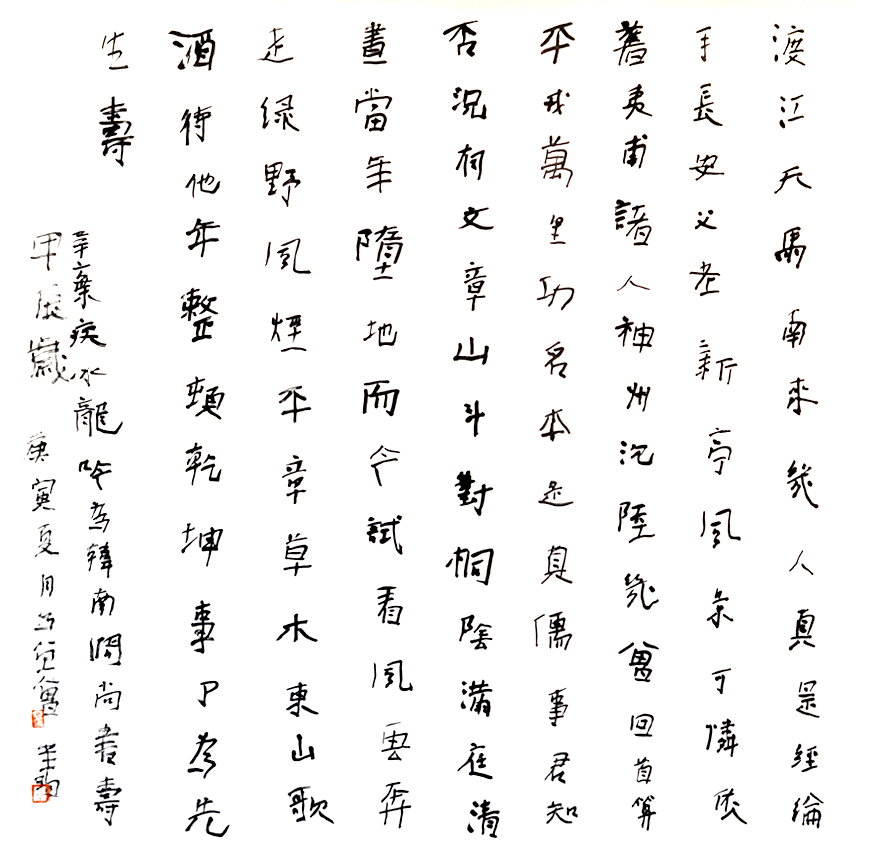 渡江天馬南來幾人真是經綸
手長安父老新亭風景可憐依
舊夷甫諸人神州沉陸幾曾回首算
平戎萬里功名本是真儒事君知
否況有文章山斗對桐陰滿庭清
晝當年墮地而今試看風雲奔
走绿野風煙平章草木東山歌
酒待他年整頓乾坤事了為先
生壽
辛棄疾水龍吟為韓南澗尚書壽
甲辰歲 庚寅夏月